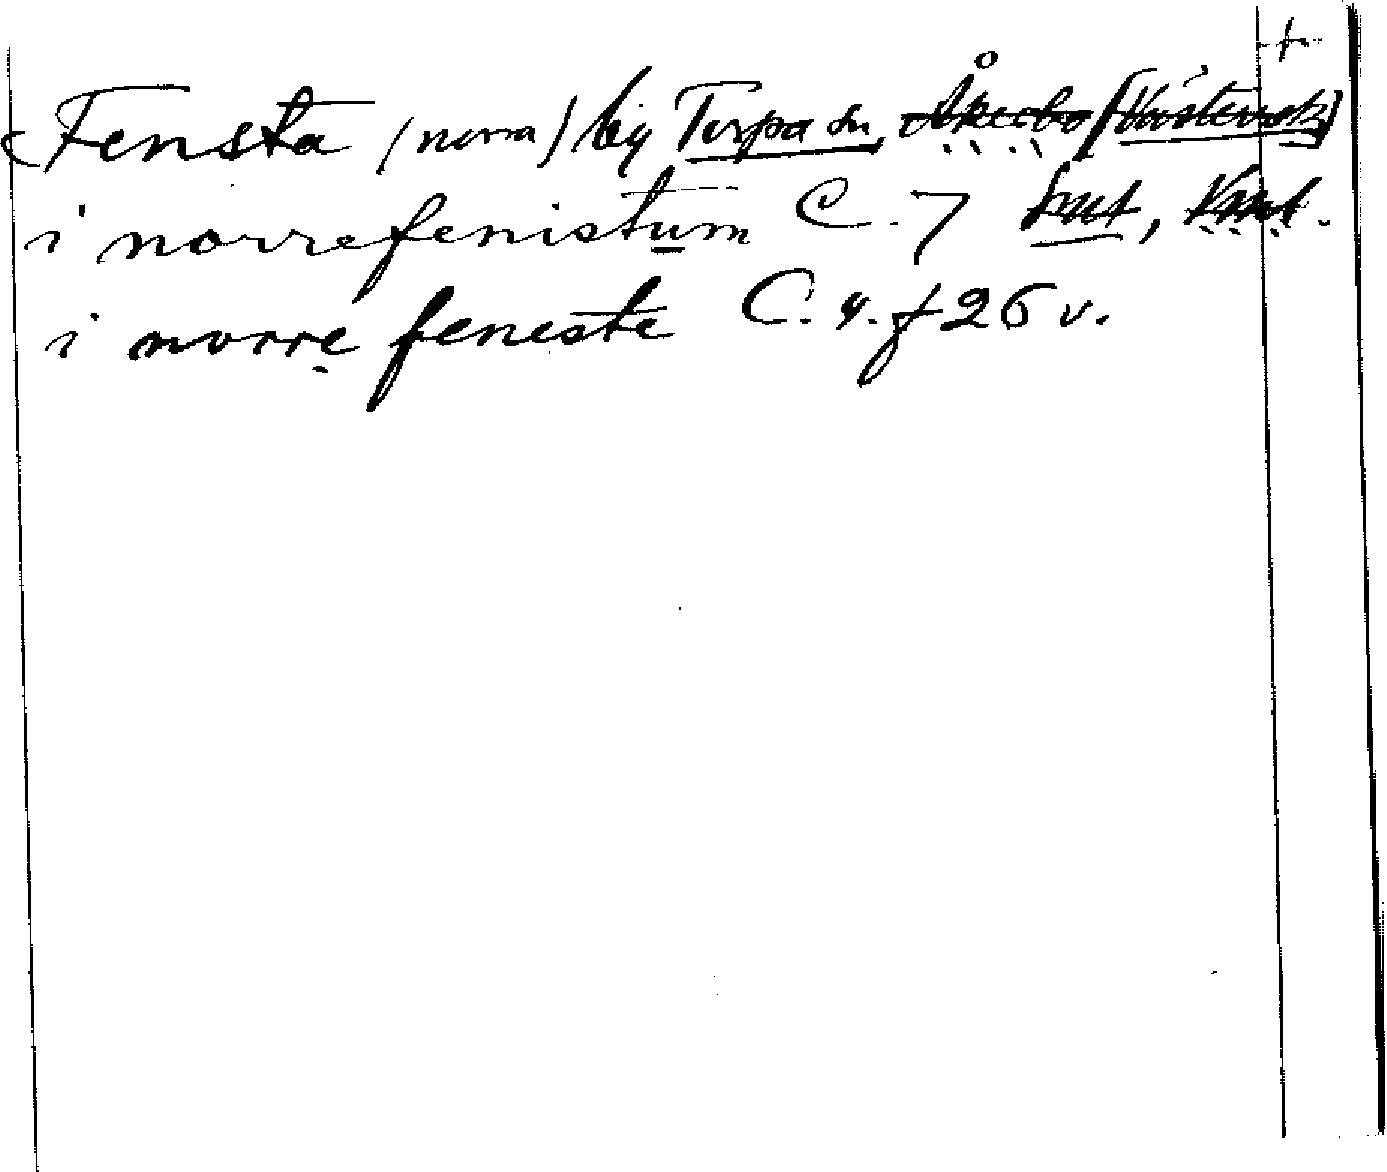 +
Fensta (norra) by Torpa sn, Åkerbo [Västerås]
i norrefenistum C. 7
i norre feneste C. 4. f 26 v.